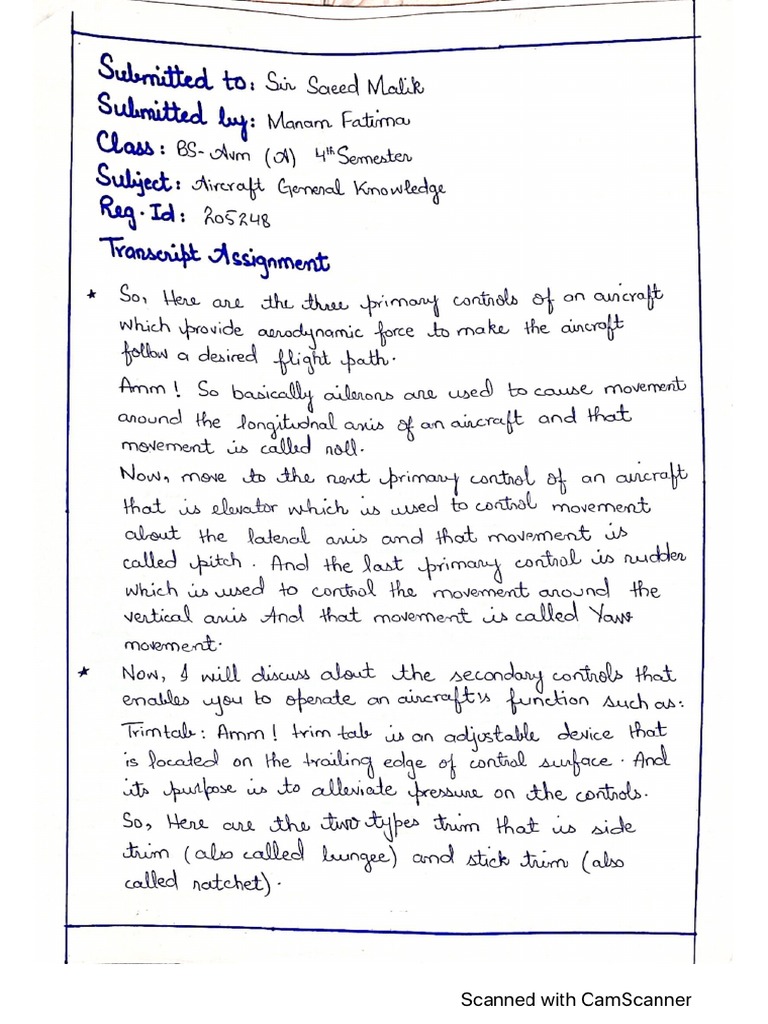 Submitted to: Sir Saeed Malik
Submitted by: Manam Fatima
Class: BS-Avm (A) 4th Semester
Subject: Aircraft General Knowledge
Reg. Id: 205248
Transcript Assignment
* So, Here are the three primary controls of an aircraft
which provide aerodynamic force to make the aircraft
follow a desired flight path.
Amm! So basically ailerons are used to cause movement
around the longitudnal axis of an aircraft and that
movement is called roll.
Now, move to the next primary control of an aircraft
that is elevator which is used to control movement
about the lateral axis and that movement is
called pitch. And the last primary control is rudder
which is used to control the movement around the
vertical axis And that movement is called Yaw
movement.
* Now, I will discuss about the secondary controls that
enables you to operate an aircraft's function such as:
Trim tab: Amm! trim tab is an adjustable device that
is located on the trailing edge of control surface. And
its purpose is to alleviate pressure on the controls.
So, Here are the two types trim that is side
trim (also called bungee) and stick trim (also
called ratchet).
Scanned with CamScanner